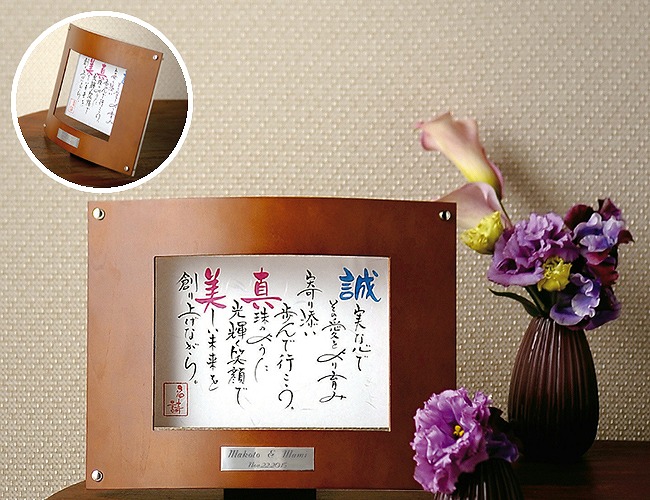 誠実な心で
その愛をより育み
寄り添い
歩んで行こう。
真珠のように
光輝く笑顔で
美しい未来を
創り上げながら。
Makoto & Mami
Nov.22.2015